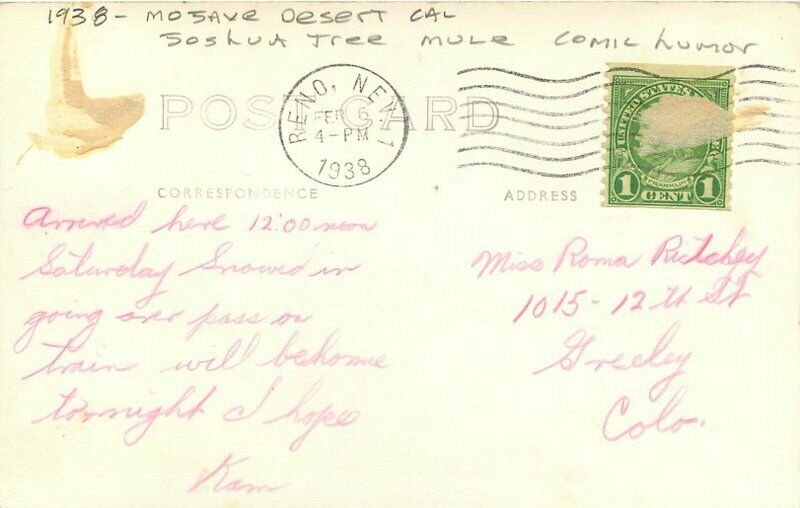 1938 - MOJAVE DESERT CAL
JOSHUA TREE MULE COMIC HUMOR
POST CARD
RENO, NEV. 1
FEB 6
4-PM
1938
UNITED STATES
FRANKLIN
1 CENT 1
CORRESPONDENCE
ADDRESS
Arrived here 12:00 noon
Saturday Snowed in
going over pass on
train will be home
tonight I hope
Kam
Miss Roma Ritchey
1015-12th St
Greeley
Colo.